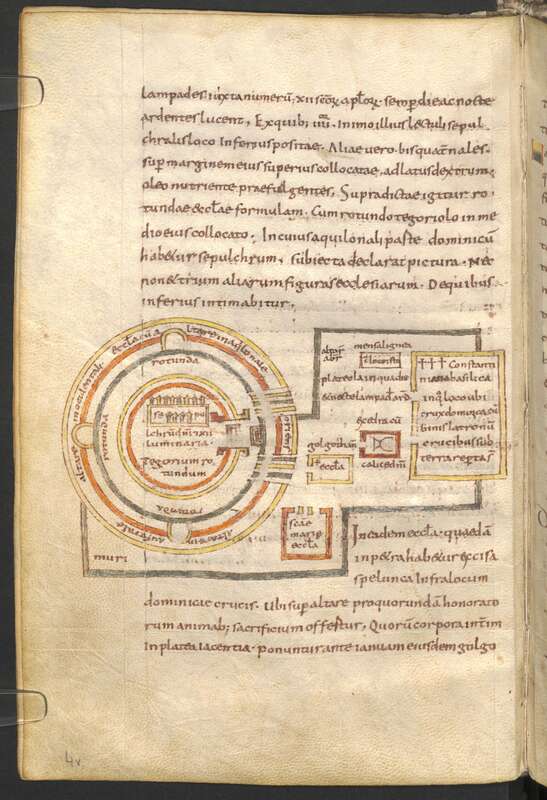 lampades iuxta numerū xii scōrū aplōrū semper die ac nocte
ardentes lucent, Ex quibus iiii in imo illius lectuli sepul
chralis loco inferius positae. Aliae vero bis quaternales
super marginem eius superius collocatae, ad latus dextrum
oleo nutriente praefulgentes, Supradictae igitur ro
tundae ecclae formulam. Cum rotundo tegoriolo in me
dio eius collocato. In cuius aquilonali parte dominicū
habetur sepulchrum, subiecta declarat pictura. Nec
non et trium aliarum figuras ecclesiarum. De quibus
inferius intimabitur.
rotunda
rotunda
luminaria
tegorium ro
tundum
mensa lignea
plateola in qua die
ac nocte lampad ard
Constanti
niana basilica
in q loco ubi
crux dom
binis latronū
crucibus sub
terra reperta ē
exedra cū
calice dnī
golgothan
eccla
scae
eccla
muri
In eadem eccla quaedā
in petra habetur excisa
spelunca infra locum
dominicae crucis. Ubi super altare pro quorundā honorato
rum animab; sacrificium offertur, Quorū corpora interim
in platea iacentia ponuntur ante ianuam eiusdem golgo
4v